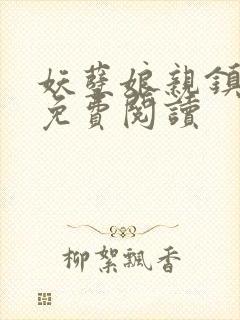 妖孽娘親鎮
免費閱讀
柳絮飄香